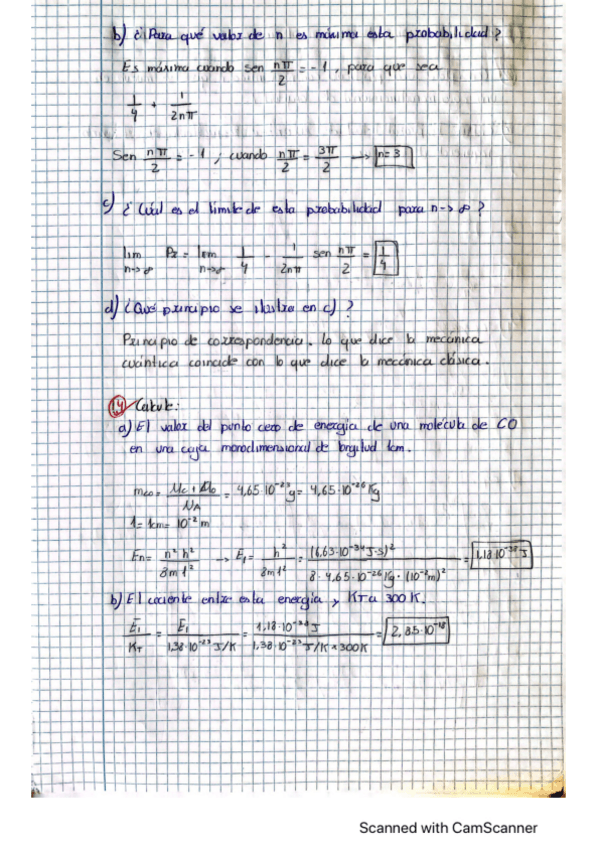 b) ¿Para qué valor de n es máxima esta probabilidad?
Es máxima cuando sen nπ/2 = -1, para que sea
1/4 + 1/2nπ
Sen nπ/2 = -1; cuando nπ/2 = 3π/2 → n=3
c) ¿Cuál es el límite de esta probabilidad para n→∞?
lim n→∞ Pr = lim n→∞ 1/4 - 1/2nπ sen nπ/2 = 1/4
d) ¿Qué principio se ilustra en c)?
Principio de correspondencia. Lo que dice la mecánica
cuántica coincide con lo que dice la mecánica clásica.
1.4 Calcule:
a) El valor del punto cero de energía de una molécula de CO
en una caja monodimensional de longitud 1cm.
mco = Mc + Mo / NA = 4,65·10⁻²³ g = 4,65·10⁻²⁶ Kg
l = 1cm = 10⁻² m
En = n²h²/8ml² → E₁ = h²/8ml² = (6,63·10⁻³⁴ J·s)² / 8·4,65·10⁻²⁶ Kg·(10⁻²m)² = 1,18·10⁻³⁸ J
b) El cociente entre esta energía y KT a 300K.
E₁/KT = E₁/1,38·10⁻²³ J/K = 1,18·10⁻³⁸ J / 1,38·10⁻²³ J/K × 300K = 2,85·10⁻¹⁸
Scanned with CamScanner